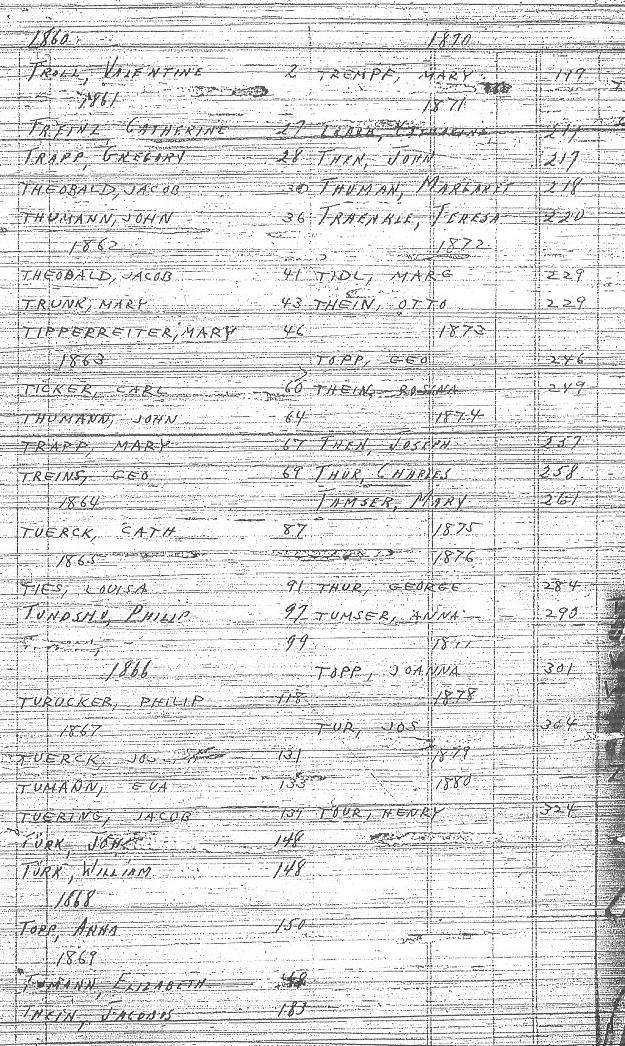 1860
TROLL, VALENTINE 2
1861
CATHERINE 27
TRAPP, GREGORY 28
THEOBALD, JACOB 30
THUMANN, JOHN 36
1862
THEOBALD, JACOB 41
TRUNK, MARY 43
TIPPERREITER, MARY 46
1863
TICKER, CARL 60
THUMANN, JOHN 64
TRAPP, MARY 67
TREINS, GEO 69
1864
TUERCK, CATH 87
1865
TIES, LOUISA 91
TUNDSHU, PHILIP 97
99
1866
TURUCKER, PHILIP 118
1867
TUERCK, JOS 131
TUMANN, EVA 133
TUERING, JACOB 139
TÜRK, JOHN 148
TÜRK, WILLIAM 148
1868
TOPP, ANNA 150
1869
TUMANN, ELIZABETH 168
THEIN, JACOBUS 183
1870
TREMPF, MARY 199
1871
217
THEN, JOHN 217
THUMAN, MARGARET 218
TRAENKLE, TERESA 220
1872
TIDL, MARG 229
THEIN, OTTO 229
1873
TOPP, GEO 246
THEIN, ROSINA 249
1874
THEN, JOSEPH 257
THUR, CHARLES 258
TAMSER, MARY 261
1875
1876
THUR, GEORGE 284
TUMSER, ANNA 290
TOPP, JOANNA 301
1878
TUR, JOS 304
1879
1880
TOUR, HENRY 324